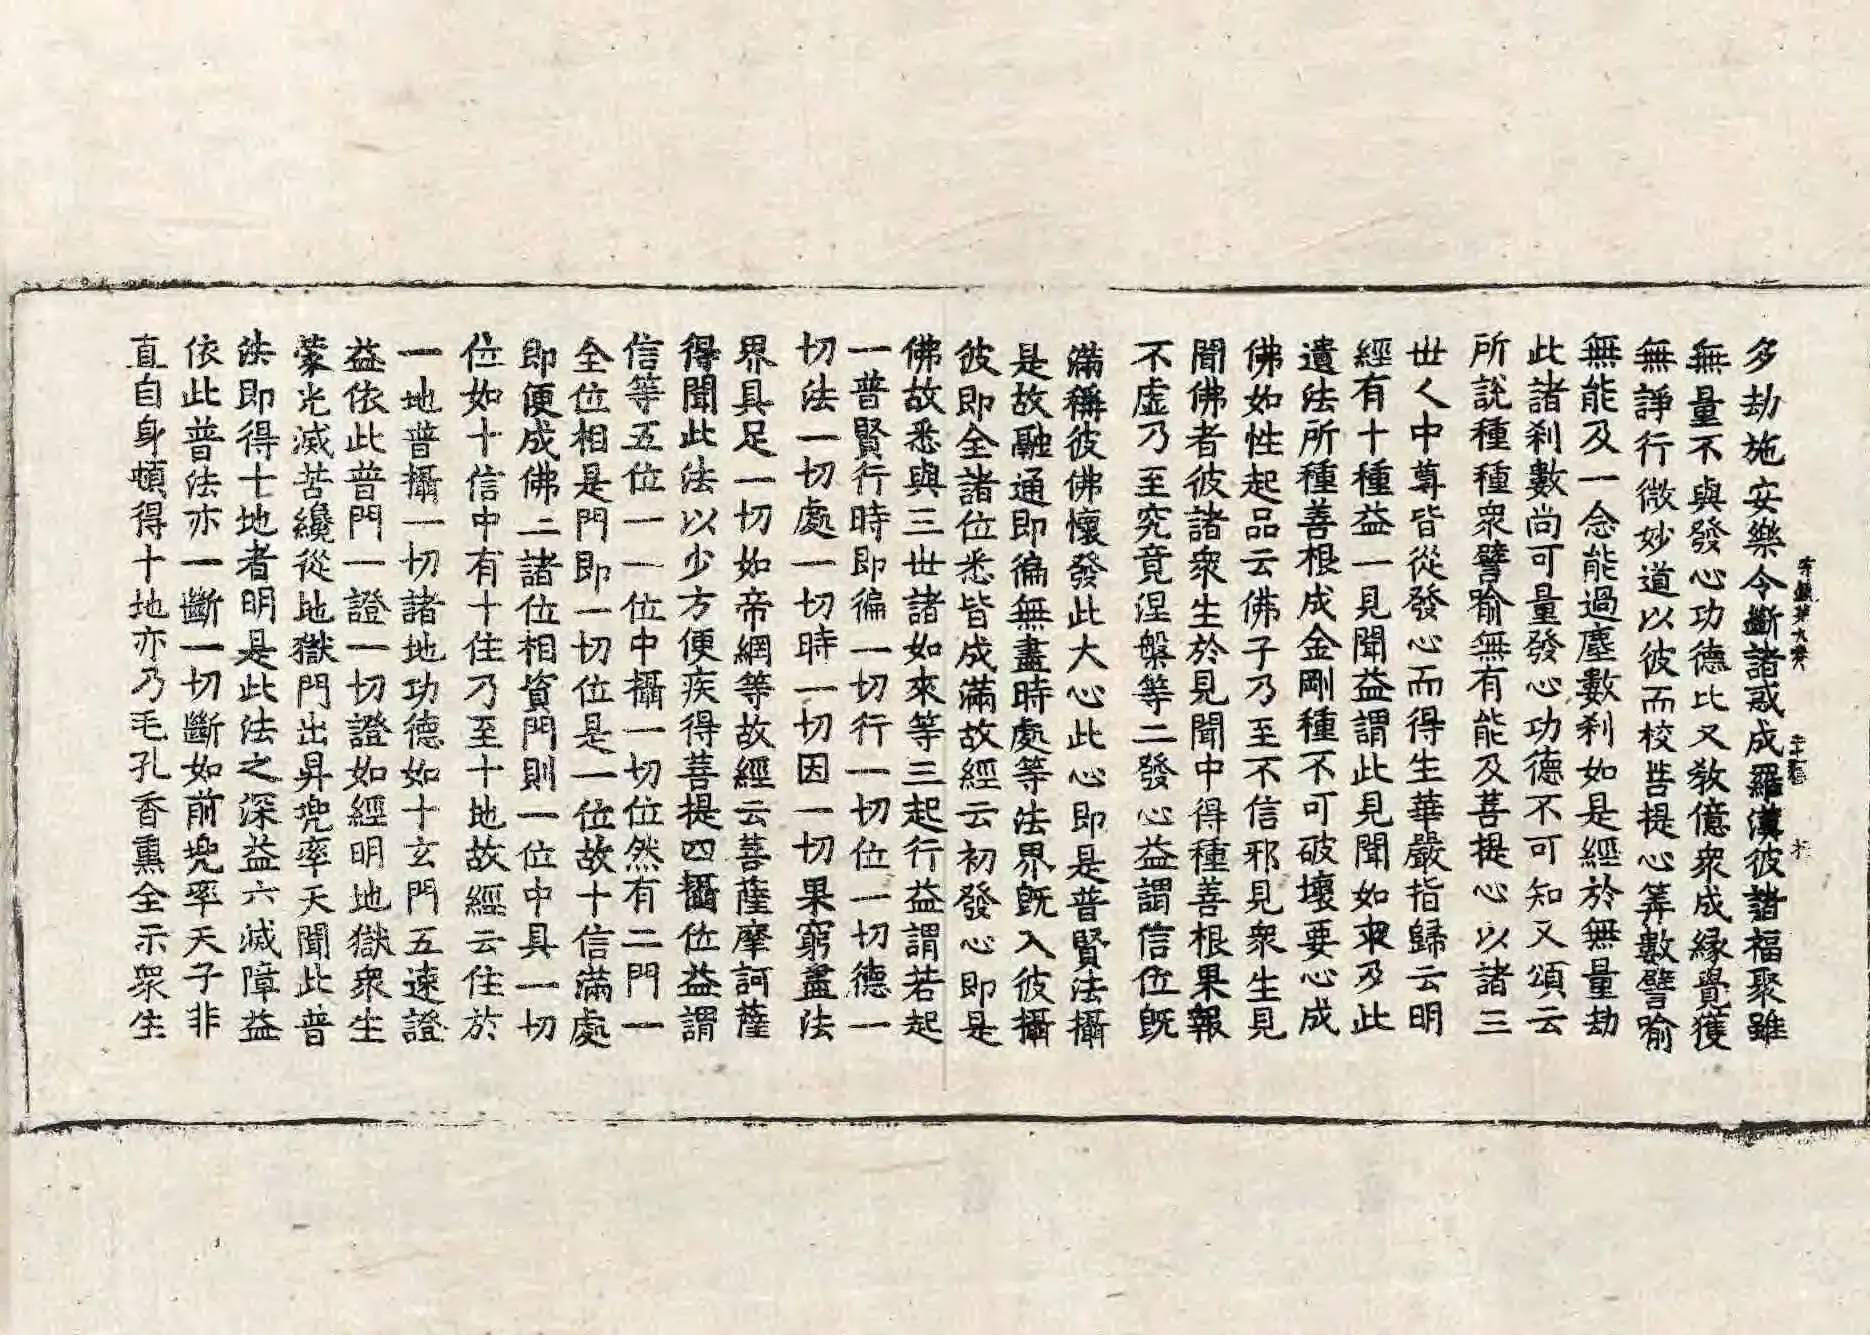 多劫施安樂令斷諸惑成羅漢彼諸福聚雖
無量不與發心功德比又教億衆成緣覺獲
無諍行微妙道以彼而校菩提心筭數譬喻
無能及一念能過塵數刹如是經於無量劫
此諸刹數尚可量發心功德不可知又頌云
所說種種衆譬喻無有能及菩提心以諸三
世人中尊皆從發心而得生華嚴指歸云明
經有十種益一見聞益謂此見聞如來及此
遺法所種善根成金剛種不可破壞要心成
佛如性起品云佛子乃至不信邪見衆生見
聞佛者彼諸衆生於見聞中得種善根果報
不虛乃至究竟涅槃等二發心益謂信位旣
滿稱彼佛懷發此大心此心即是普賢法攝
是故融通即徧無盡時處等法界旣入彼攝
彼即全諸位悉皆成滿故經云初發心即是
佛故悉與三世諸如來等三起行益謂若起
一普賢行時即徧一切行一切位一切德一
切法一切處一切時一切因一切果窮盡法
界具足一切如帝網等故經云菩薩摩訶薩
得聞此法以少方便疾得菩提四攝位益謂
信等五位一一位中攝一切位然有二門一
全位相是門即一切位是一位故十信滿處
即便成佛二諸位相資門則一位中具一切
位如十信中有十住乃至十地故經云住於
一地普攝一切諸地功德如十玄門五速證
益依此普門一證一切證如經明地獄衆生
蒙光滅苦纔從地獄門出昇兜率天聞此普
法即得十地者明是此法之深益六滅障益
依此普法亦一斷一切斷如前兜率天子非
直自身頓得十地亦乃毛孔香熏全示衆生